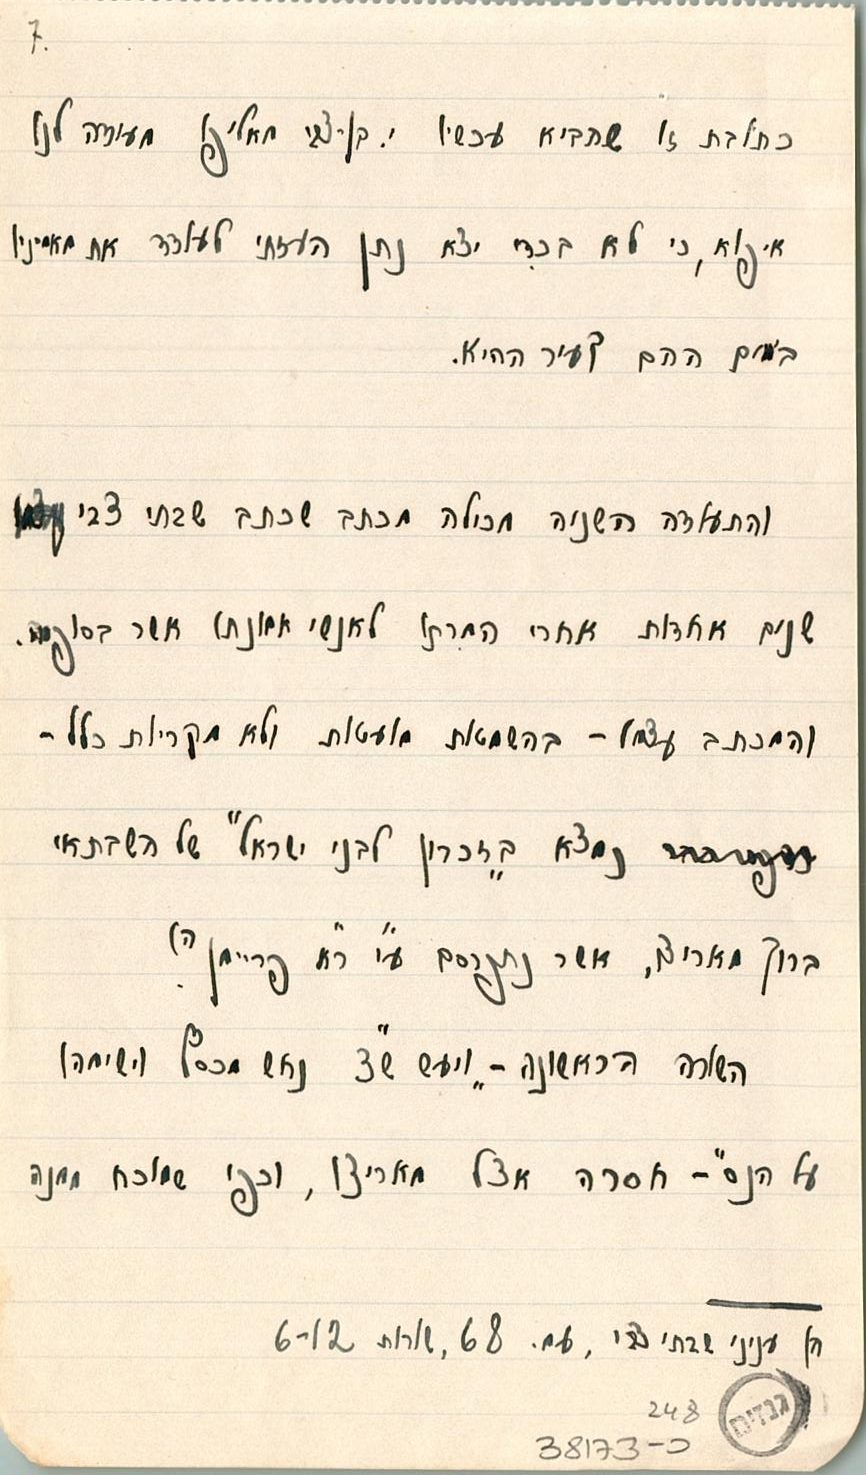 7.
כתובת זו שהביא עכשיו י. בן-צבי מאליפו מעידה לנו
איפוא, כי לא בכדי יצא נתן העזתי לעודד את מאמיניו
בימים ההם לעיר ההיא.
והתעודה השניה מכילה מכתב שכתב שבתי צבי
שנים אחדות אחרי המרתו לאנשי אמונתו אשר בסופיה.
והמכתב עצמו - בהשמטות מועטות ולא מקריות כלל -
נמצא ב„זכרון לבני ישראל" של השבתאי
ברוך מאריצו, אשר נתפרסם ע"י ר"א פריימן ה).
השורה הראשונה - „ויעש ש"צ נחש מכסף וישימהו
על הנס" - חסרה אצל מאריצו, וכפי שמוכח ממנה
ה) עניני שבתי צבי, עמ. 68, שורות 6-12
גנזים
248
38173-כ